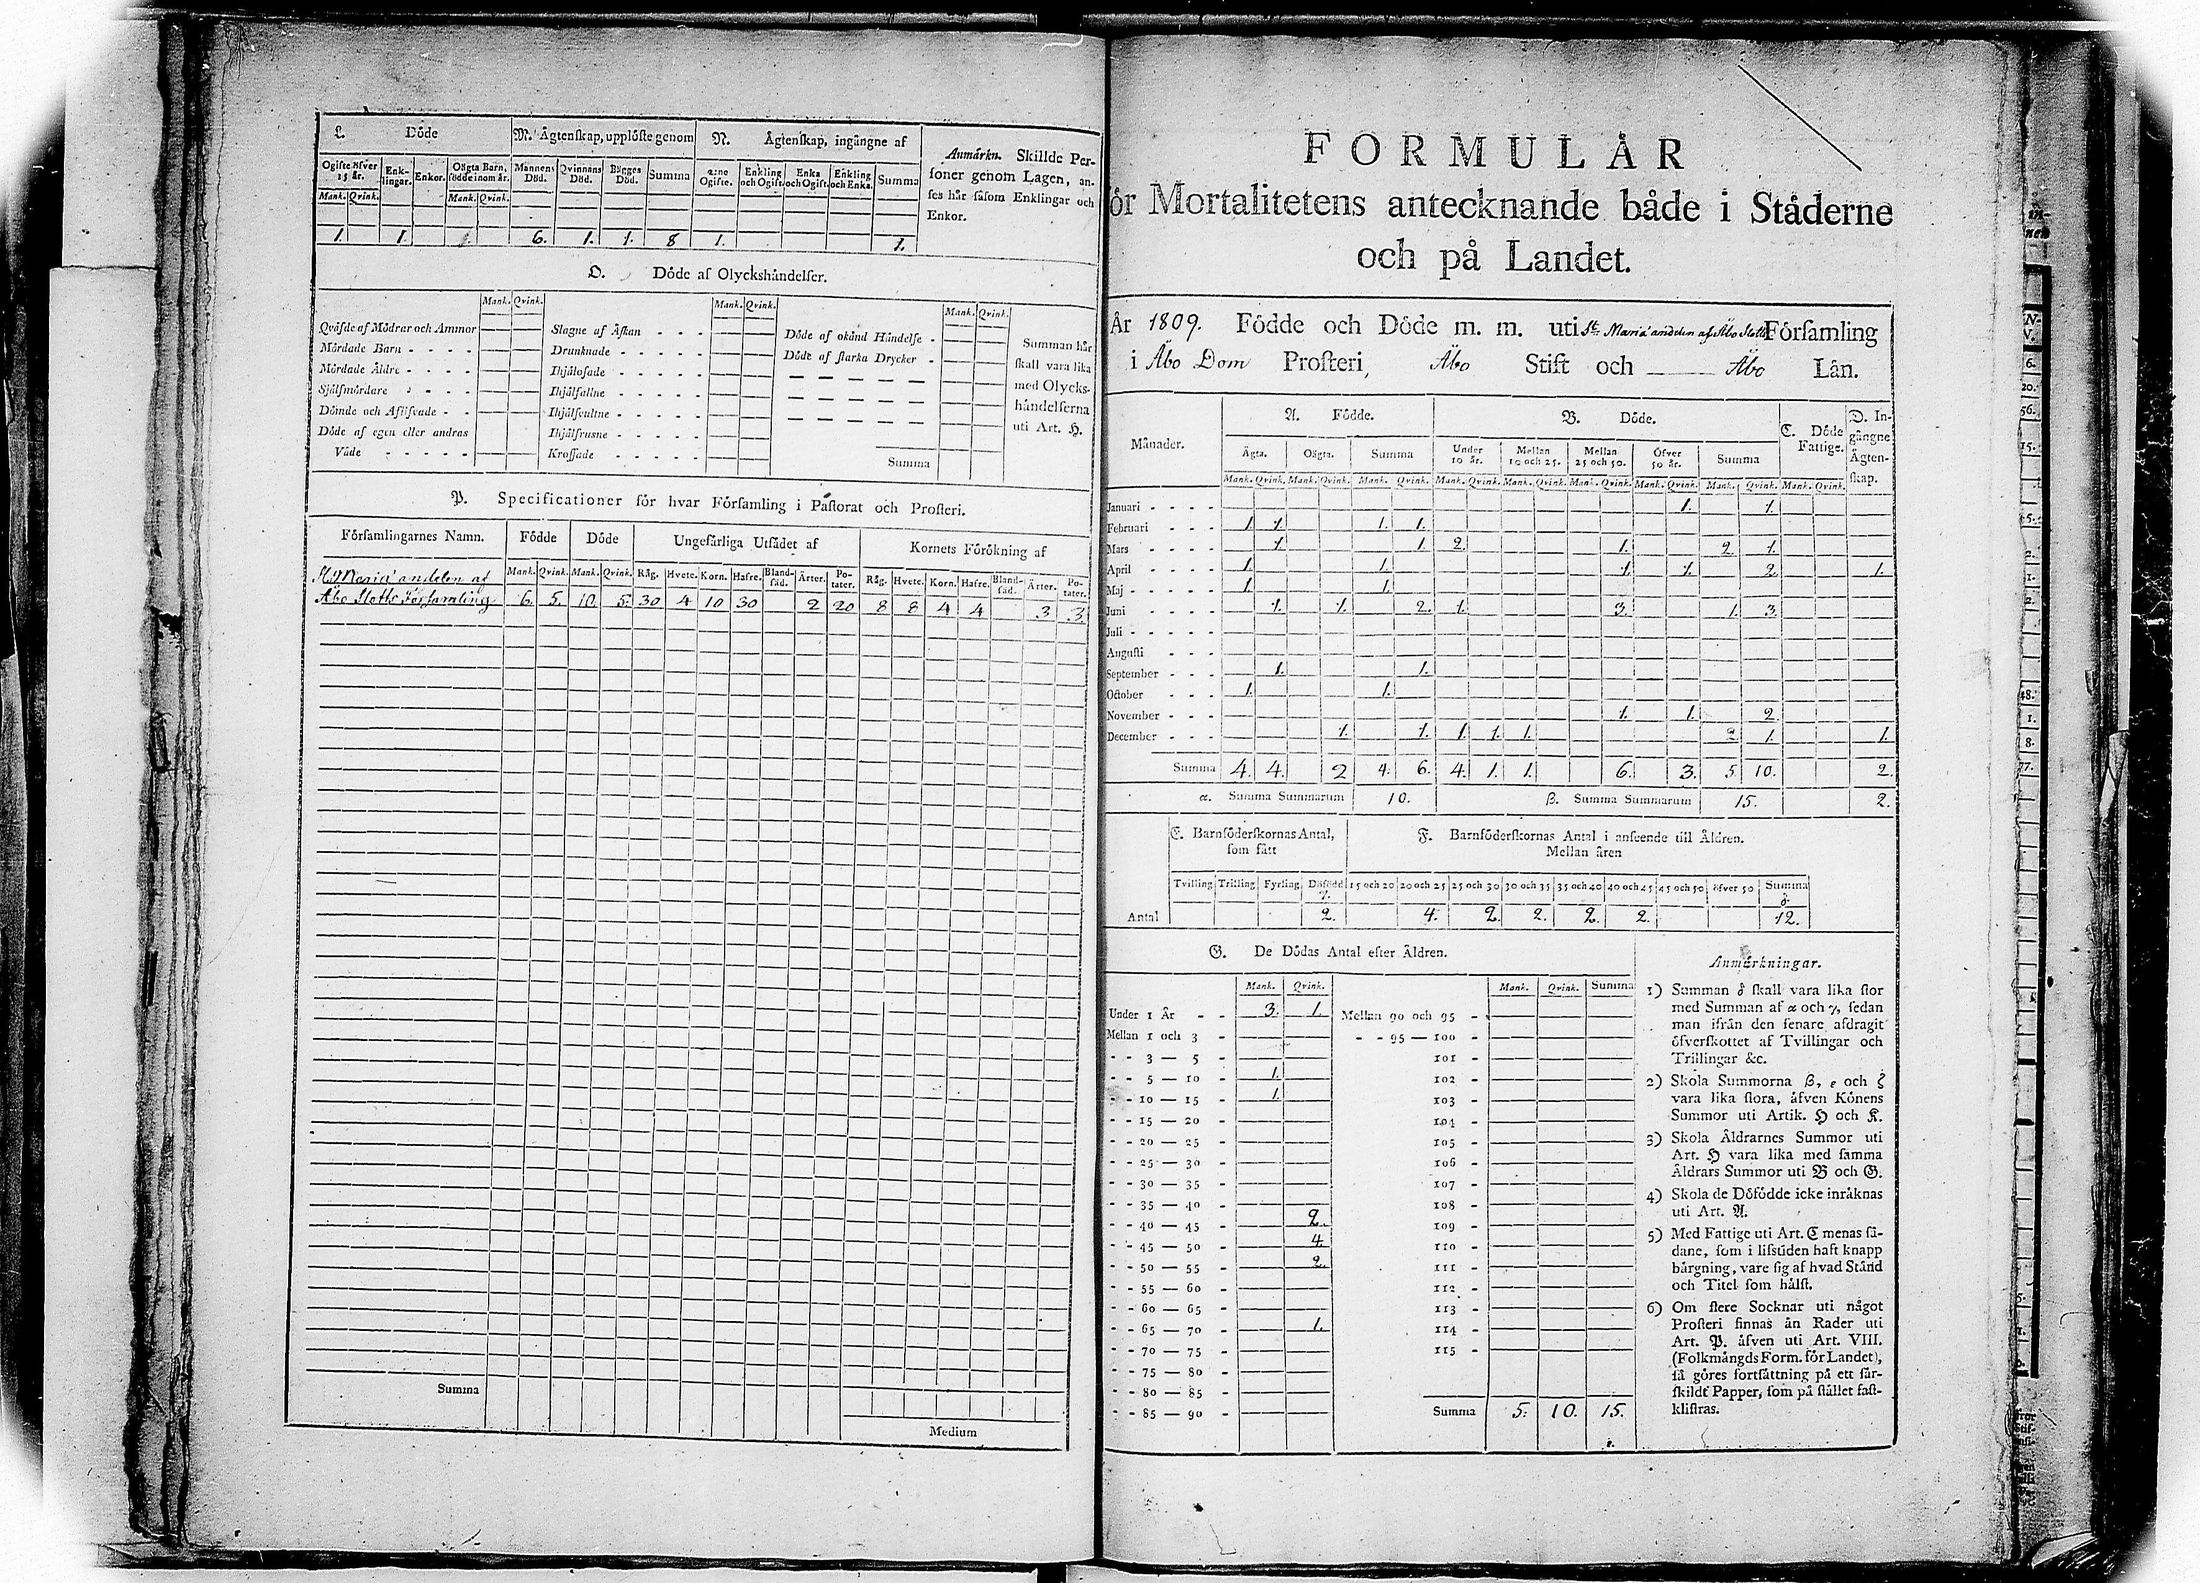 L. Döde
M. Ägtenskap, upplöste genom
N. Ägtenskap, ingångne af
Ogifte öfver 15 år. Enklingar. Enkor. Oägta Barn, födde inom år.
Mannens Död. Qvinnans Död. Bägges Död. Summa
2:ne Ogifte. Enkling och Ogift. Enka och Ogift. Enkling och Enka. Summa
Mank. Qvink. Mank. Qvink.
1. 1. 6. 1. 1. 8 1. 1.
Anmärkn. Skillde Per-
soner genom Lagen, an-
ses här såsom Enklingar och
Enkor.
O. Döde af Olyckshändelser.
Mank. Qvink. Mank. Qvink. Mank. Qvink.
Qväfde af Mödrar och Ammor
Mördade Barn - - - -
Mördade Äldre - - - -
Sjelfmördare - - - -
Dömde och Aflifvade - -
Döde af egen eller andras
Våde - - - - -
Slagne af Åskan - - -
Drunknade - - - - -
Ihjälosade - - - - -
Ihjälfallne - - - - -
Ihjälsvultne - - - - -
Ihjälfrusne - - - - -
Krossade - - - - -
Döde af okänd Händelse -
Döde af starka Drycker -
Summa
Summan här
skall vara lika
med Olycks-
händelserna
uti Art. H.
P. Specificationer för hvar Församling i Pastorat och Prosteri.
Församlingarnes Namn. Födde Döde Ungefärliga Utsädet af Kornets Förökning af
Mank. Qvink. Mank. Qvink. Råg. Hvete. Korn. Hafre. Bland-säd. Ärter. Po-tater. Råg. Hvete. Korn. Hafre. Bland-säd. Ärter. Po-tater.
St Mariæ andelen af
Åbo Slotts Församling 6. 5. 10. 5. 30 4 10 30 2 20 8 8 4 4 3 3
Summa
Medium
FORMULÄR
för Mortalitetens antecknande både i Städerne
och på Landet.
År 1809. Födde och Döde m. m. uti St: Mariæ andelen af Åbo Slotts Församling
i Åbo Dom Prosteri, Åbo Stift och Åbo Län.
Månader. A. Födde. B. Döde. C. Döde Fattige. D. In-gångne Ägten-skap.
Ägta. Oägta. Summa Under 10 år. Mellan 10 och 25. Mellan 25 och 50. Öfver 50 år. Summa
Mank. Qvink. Mank. Qvink. Mank. Qvink. Mank. Qvink. Mank. Qvink. Mank. Qvink. Mank. Qvink. Mank. Qvink. Mank. Qvink.
Januari - - - - 1. 1.
Februari - - - 1. 1. 1. 1.
Mars - - - - 1. 1. 2. 1. 2. 1.
April - - - - 1. 1. 1. 1. 2. 1.
Maj - - - - 1. 1.
Juni - - - - 1. 1. 2. 1. 3. 1. 3.
Juli - - - - -
Augusti - - -
September - - - 1. 1.
October - - - 1. 1.
November - - - 1. 1. 2.
December - - - 1. 1. 1. 1. 1. 2. 1. 1.
Summa 4. 4. 2 4. 6. 4. 1. 1. 6. 3. 5 10. 2.
α. Summa Summarum 10. β. Summa Summarum 15. 2.
E. Barnföderskornas Antal,
som fått
F. Barnföderskornas Antal i anseende till Åldren.
Mellan åren
Tvilling Trilling Fyrling Döfödd 15 och 20 20 och 25 25 och 30 30 och 35 35 och 40 40 och 45 45 och 50 öfver 50 Summa
γ. δ
Antal 2. 4. 2. 2. 2. 2. 12.
G. De Dödas Antal efter Åldren.
Mank. Qvink. Mank. Qvink. Summa
Under 1 År - - 3. 1.
Mellan 1 och 3 -
- - 3 — 5 -
- - 5 — 10 - 1.
- - 10 — 15 - 1.
- - 15 — 20 -
- - 20 — 25 -
- - 25 — 30 -
- - 30 — 35 -
- - 35 — 40 -
- - 40 — 45 - 2.
- - 45 — 50 - 4.
- - 50 — 55 - 2.
- - 55 — 60 -
- - 60 — 65 -
- - 65 — 70 - 1.
- - 70 — 75 -
- - 75 — 80 -
- - 80 — 85 -
- - 85 — 90 -
Mellan 90 och 95 -
- - 95 — 100 -
101 -
102 -
103 -
104 -
105 -
106 -
107 -
108 -
109 -
110 -
111 -
112 -
113 -
114 -
115 -
Summa 5. 10. 15.
Anmärkningar.
1) Summan δ skall vara lika stor
med Summan af α och γ, sedan
man ifrån den senare afdragit
öfverskottet af Tvillingar och
Trillingar &c.
2) Skola Summorna β, ε och ζ
vara lika stora, äfven Könens
Summor uti Artik. H och K.
3) Skola Åldrarnes Summor uti
Art. H vara lika med samma
Åldrars Summor uti B och G.
4) Skola de Döfödde icke inräknas
uti Art. A.
5) Med Fattige uti Art. C menas så-
dane, som i lifstiden haft knapp
bärgning, vare sig af hvad Stånd
och Titel som hälst.
6) Om flere Socknar uti något
Prosteri finnas än Rader uti
Art. P. äfven uti Art. VIII.
(Folkmängds Form. för Landet),
så göres fortsättning på ett sär-
skildt Papper, som på stället fast-
klistras.